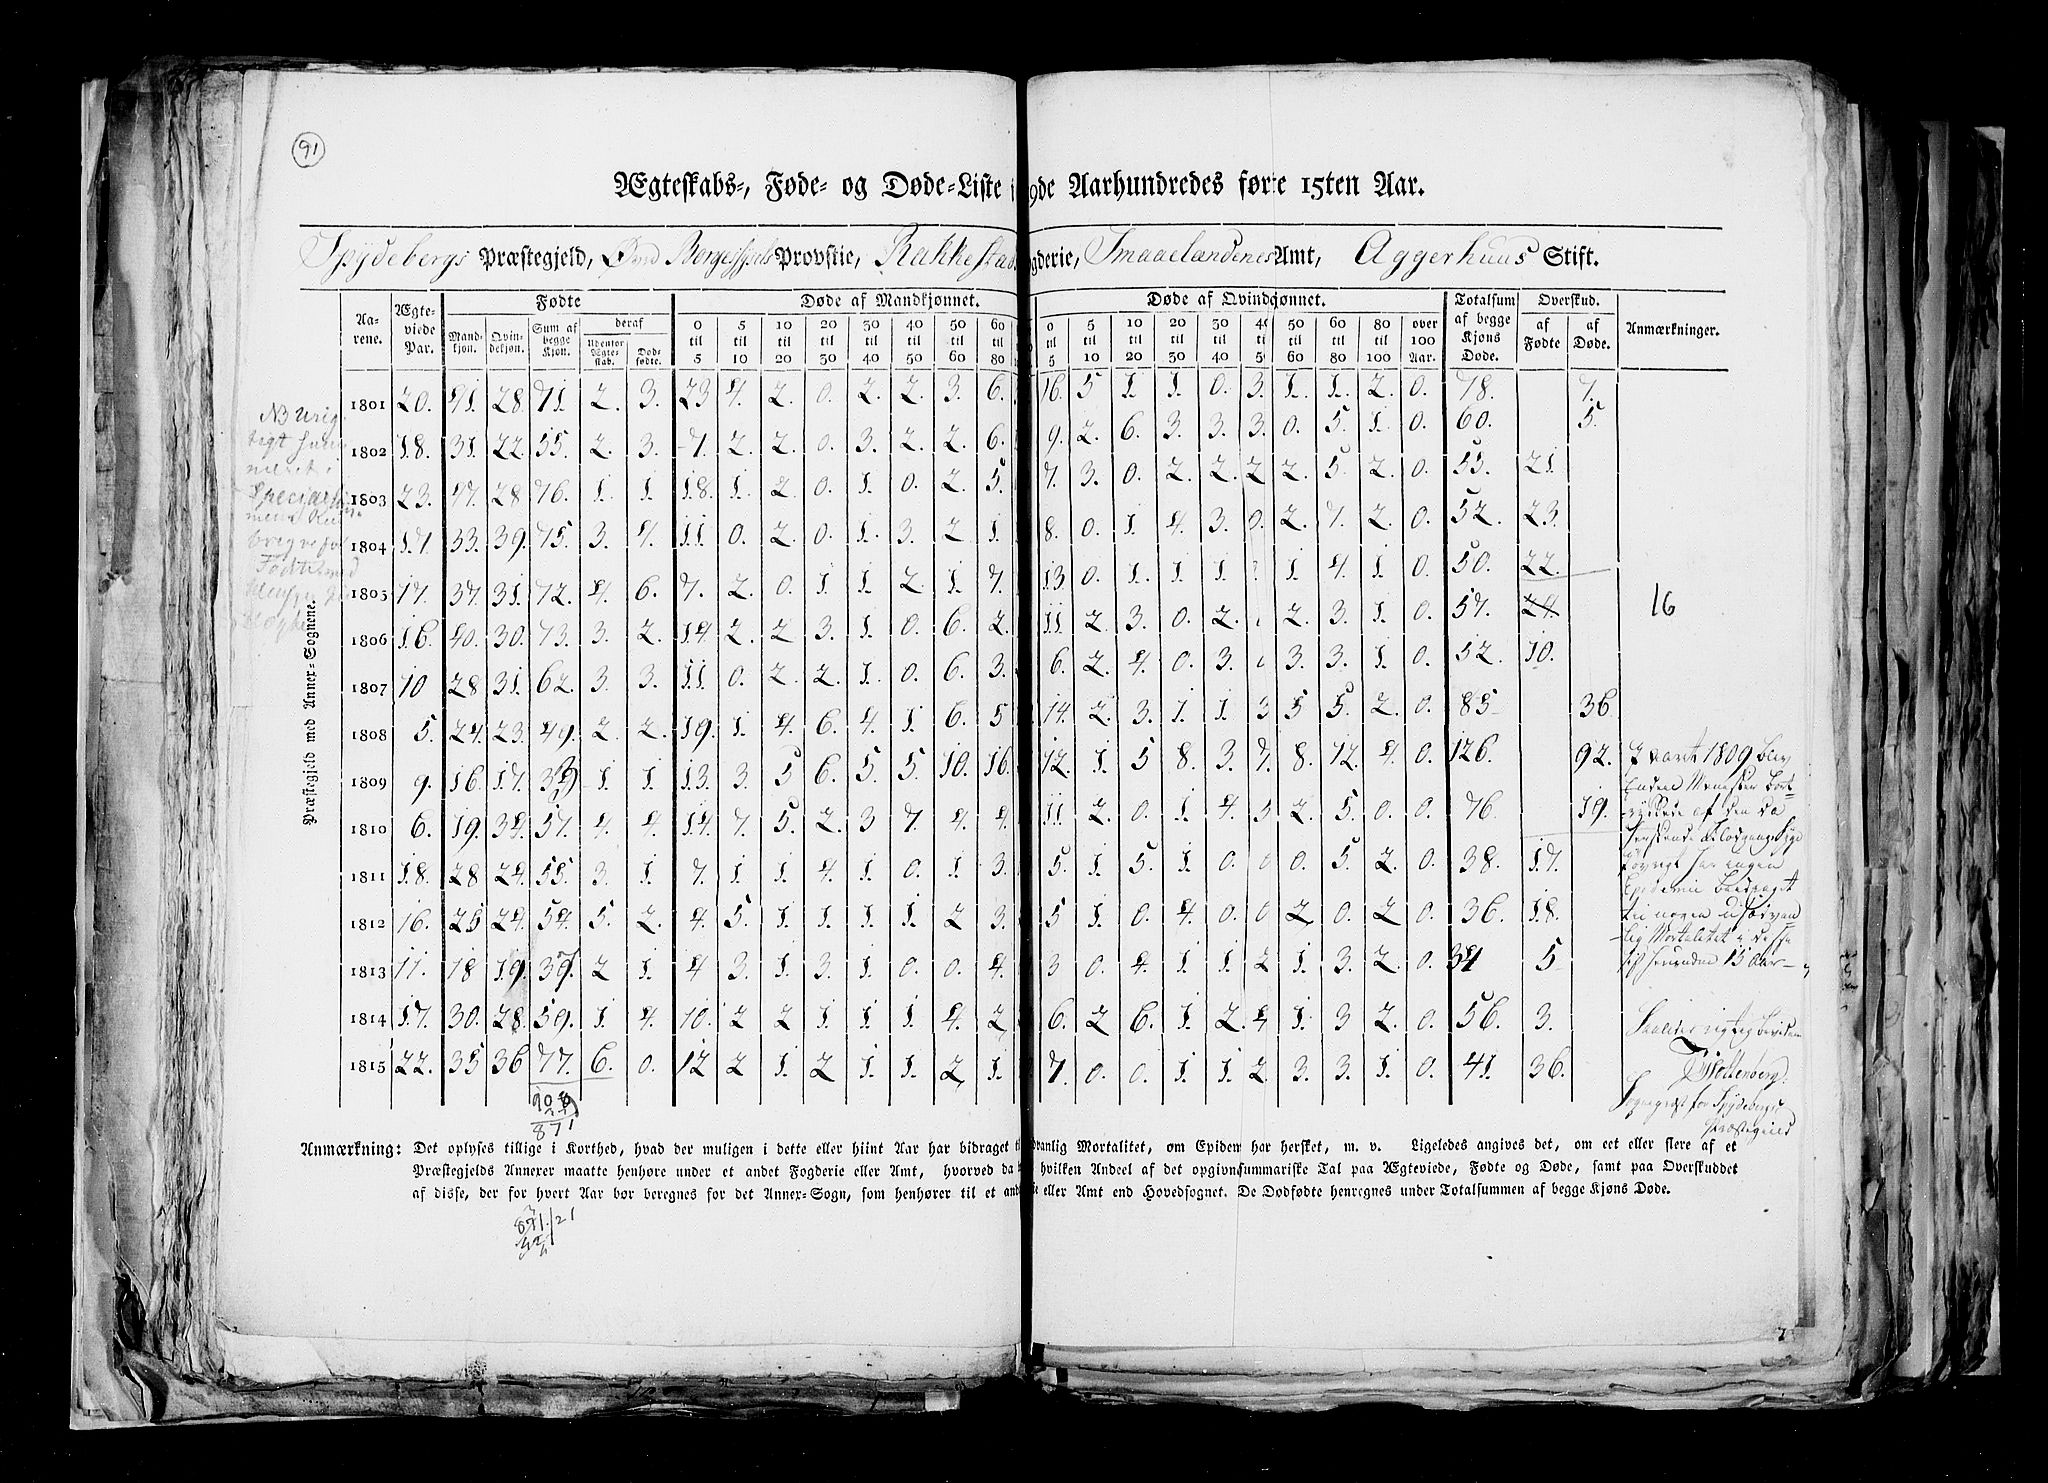 91
Ægteskabs-, Føde- og Døde-Liste i 9de Aarhundredes førte 15ten Aar.
Spydebergs Præstegjeld, Øvre Borgesyssels Provstie, Rakkestads gderie, Smaaelandenes Amt, Aggerhuus Stift.
Præstegjeld med Anner-Sognene.
Aa-rene. Ægte-viede Par. Fødte Døde af Mandkjønnet. Døde af Qvindkjønnet. Totalsum af begge Kjøns Døde. Overskud. Anmærkninger.
Mand-kjøn. Qvin-dekjøn. Sum af begge Kjøn. deraf Udenfor Ægte-skab. Død-fødte. 0 til 5 5 til 10 10 til 20 20 til 30 30 til 40 40 til 50 50 til 60 60 til 80 0 til 5 5 til 10 10 til 20 20 til 30 30 til 40 40 til 50 50 til 60 60 til 80 80 til 100 over 100 Aar. af Fødte af Døde.
1801 20. 41. 28. 71. 2. 3. 23 4. 2. 0. 2. 2. 3. 6. 16. 5 1. 1. 0. 3. 1. 1. 2. 0. 78. 7.
1802 18. 31. 22. 55. 2. 3. 7. 2. 2. 0. 3. 2. 2. 6. 9. 2. 6. 3. 3. 3. 0. 5. 1. 0. 60. 5.
1803 23. 47. 28 76. 1. 1 18. 1. 2. 0. 1. 0. 2. 5. 7. 3. 0. 2. 2. 2 2. 5. 2. 0. 55. 21.
1804 17. 33. 39. 75. 3. 4. 11 0. 2. 0. 1. 3. 2 1. 8. 0. 1. 4. 3. 0. 2. 7. 2. 0. 52. 23.
1805 17. 37. 31. 72. 4. 6. 7. 2. 0. 1 1. 2. 1. 7. 13 0. 1. 1. 1. 1. 4. 1. 0. 50. 22.
1806 16. 40. 30. 73. 3. 2. 14 2. 2 3. 1. 0. 6. 2. 11. 2. 3. 0. 2. 2. 3. 1. 0. 57. 24. 16
1807 10 28 31. 62. 3. 3. 11. 0. 2. 2. 1. 0. 6. 3. 6. 2. 4. 0. 3. 3. 3. 1. 0. 52. 10.
1808 5. 24. 23. 49. 2. 2. 19. 1. 4. 6. 4. 1. 6. 5 14. 2. 3. 1. 1. 3 5 5. 2. 0. 85 36
1809 9. 16. 17. 1. 1. 13. 3. 5 6. 5. 5. 10. 16. 12. 1. 5 8. 3. 7. 8. 12. 4. 0. 126. 92.
1810 6. 19. 34. 57. 4. 4. 14. 7. 5. 2. 3 7. 4. 4. 11. 2. 0. 1. 4. 3 2. 5. 0. 0. 76. 19.
1811 18. 28 24. 55. 3. 1. 7. 1. 1. 4. 1. 0. 1. 3. 5. 1. 5. 1. 0. 0 0. 5. 2. 0. 38. 17.
1812 16. 25 24. 54. 5. 2. 4. 5. 1. 1. 1. 1. 2 3. 5 1. 0. 4. 0. 0 2. 0. 2. 0. 36. 18.
1813 11. 18 19. 2 1. 4 3. 1. 3. 1. 0. 0. 4. 3 0. 4. 1. 1. 2 1. 3. 2. 0. 34 5
1814 17. 30. 28. 59. 1. 4. 10. 2 2 1. 1. 1. 4. 2 6. 2 6. 1. 2. 4 1. 3 2. 0. 56. 3.
1815 22. 35 36 77. 6. 0. 12 2 1. 2 1. 1. 2 1. 7. 0. 0. 1. 1. 2. 3. 3. 1. 0. 41. 36.
871
I aaret 1809 blev
Enden Menesker bort-
rykkede af den da
herskende Blodgangs Syge
Epidemie bidraget
til nogen usædvan
-lig Mortalitet i disse
15 Aar
Saaledes rigtig bevidnes
Sognepræst for Spydebergs
Præstegield
Anmærkning: Det oplyses tillige i Korthed, hvad der muligen i dette eller hiint Aar har bidraget t dvanlig Mortalitet, om Epidem har hersket, m. v. Ligeledes angives det, om eet eller flere af et
Præstegjelds Annexer maatte henhøre under et andet Fogderie eller Amt, hvorved da b hvilken Andeel af det opgivn summariske Tal paa Ægteviede, Fødte og Døde, samt paa Overskuddet
af disse, der for hvert Aar bør beregnes for det Anner-Sogn, som henhører til et and ie eller Amt end Hovedsognet. De Dødfødte henregnes under Totalsummen af begge Kjøns Døde.